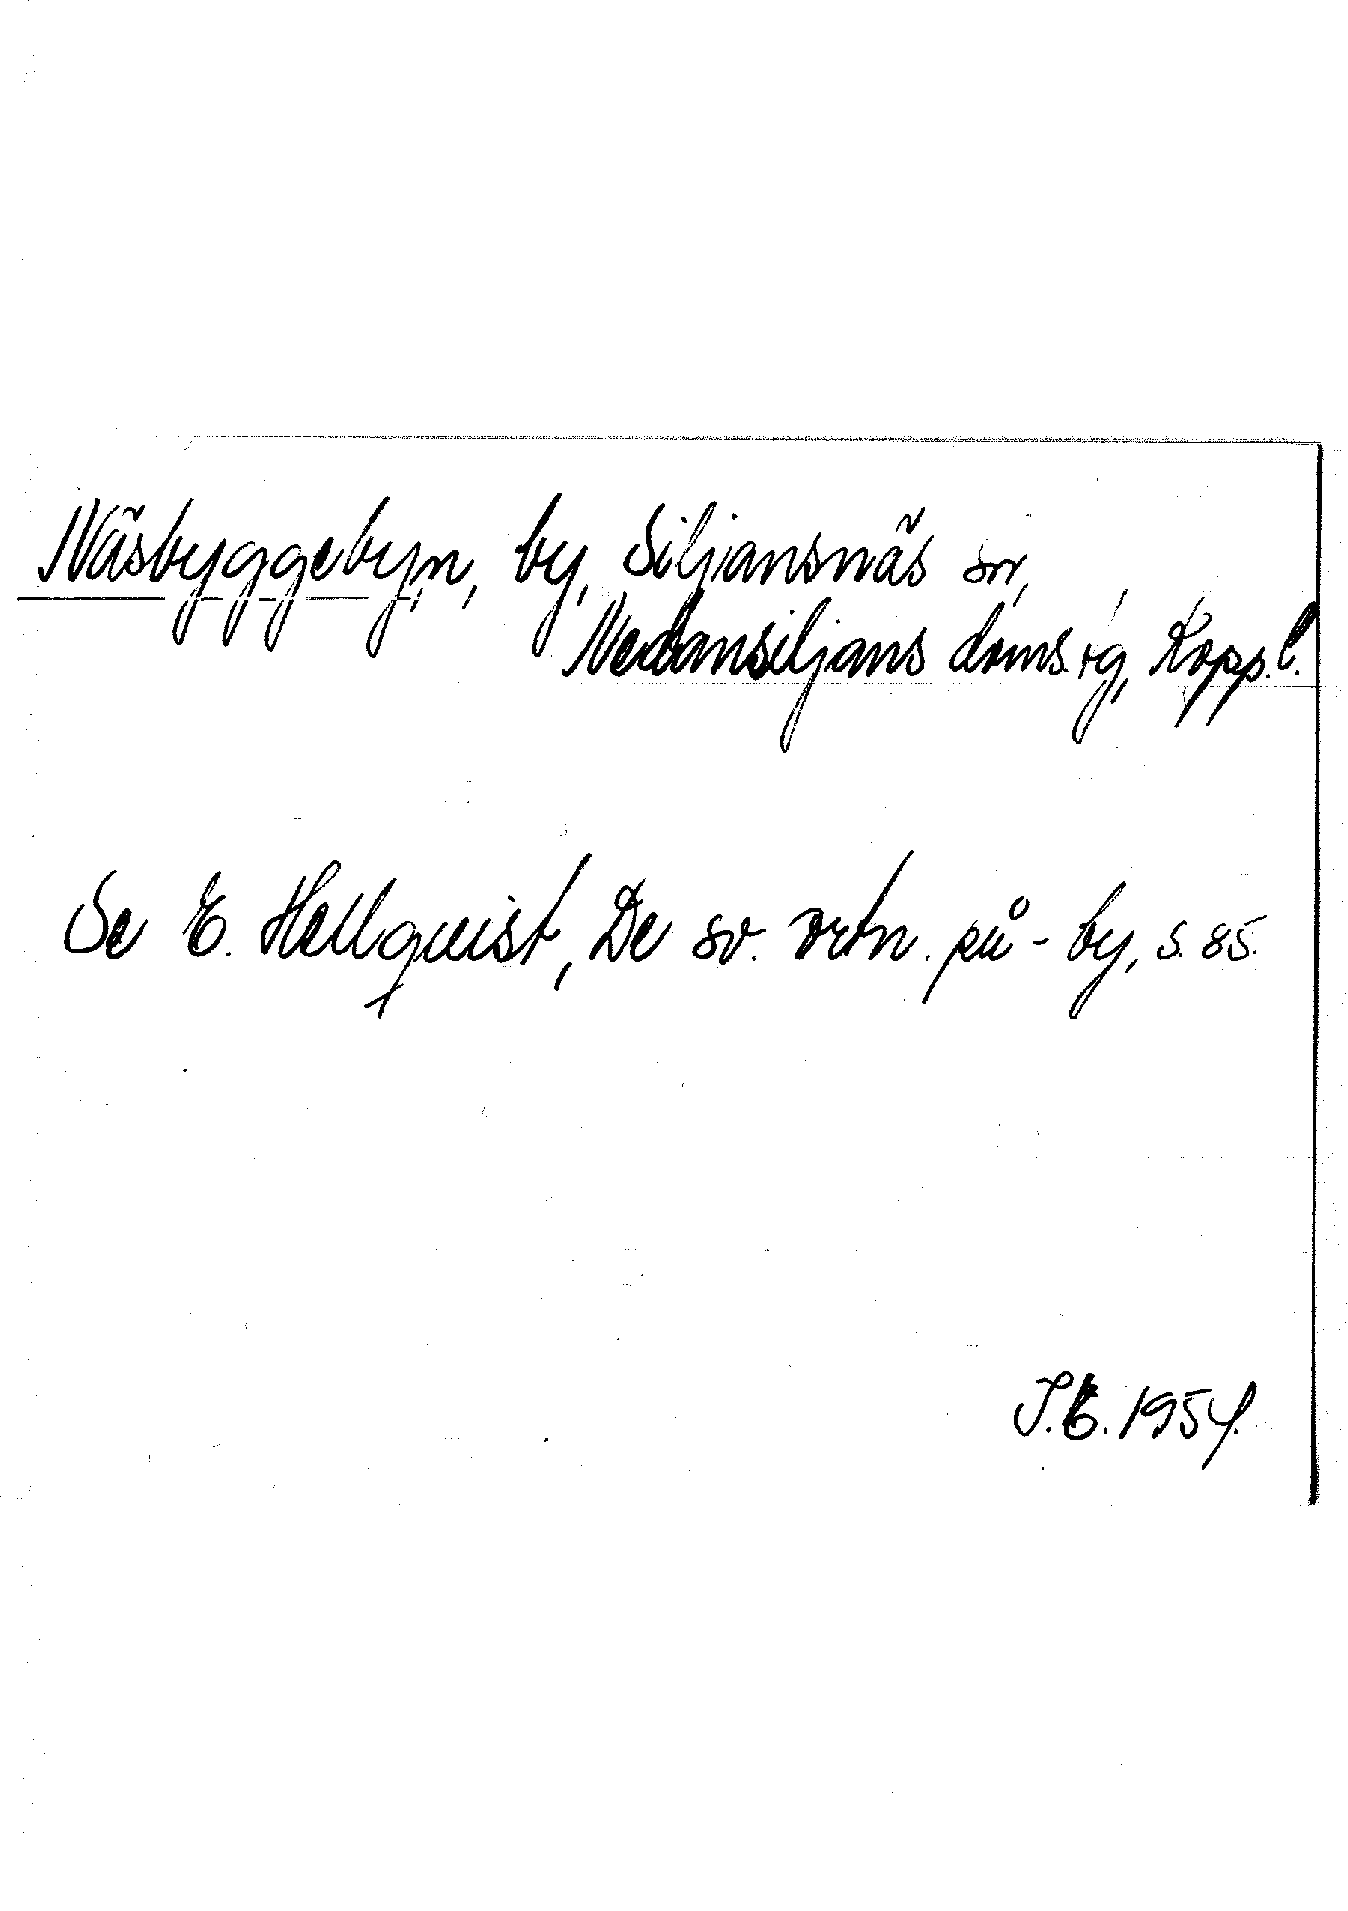 Näsbyggebyn, by, Siljansnäs sn,
Nedansiljans doms.ig, Kopp.l.
Se E. Hellquist, De sv. ortn. på -by, s. 85.
J.E. 1954.